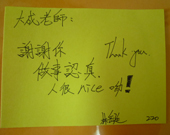 大成老師：
謝謝你 Thank you.
做事認真
人很 nice 呦！
220